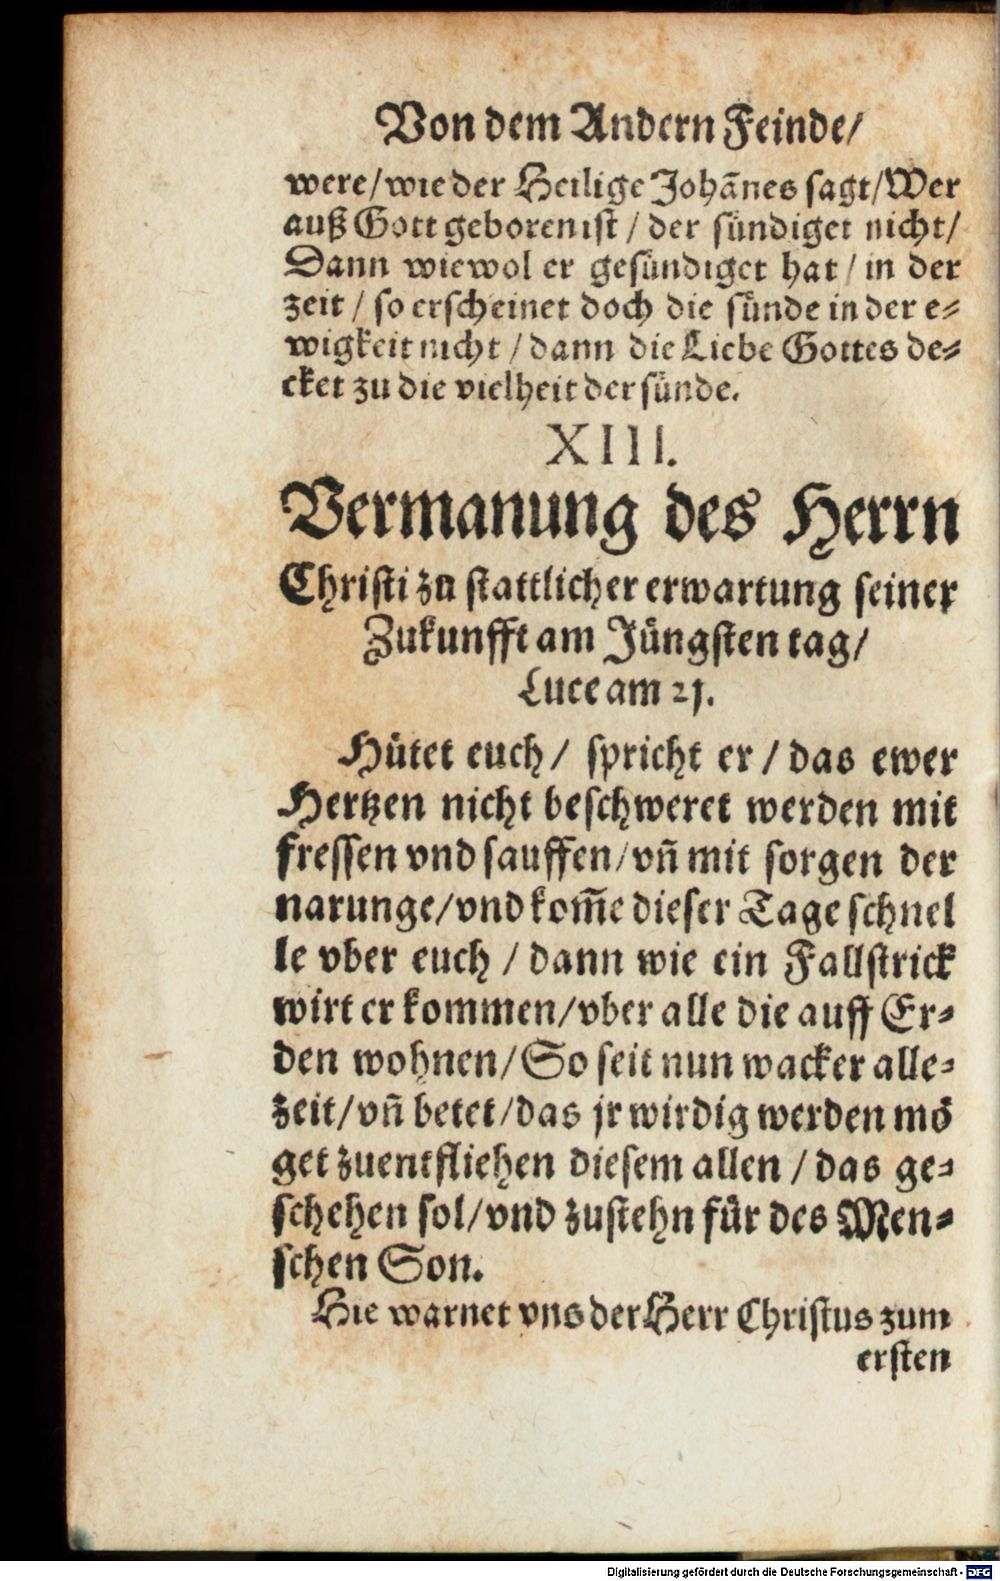 Von dem Andern Feinde/
were/wie der Heilige Johãnes sagt/Wer
auß Gott geboren ist / der sündiget nicht/
Dann wiewol er gesündiget hat / in der
zeit / so erscheinet doch die sünde in der e-
wigkeit nicht / dann die Liebe Gottes de-
cket zu die vielheit der sünde.
XIII.
Vermanung des Herrn
Christi zu stattlicher erwartung seiner
Zukunfft am Jüngsten tag/
Luce am 21.
Hütet euch/ spricht er / das ewer
Hertzen nicht beschweret werden mit
fressen vnd sauffen/vñ mit sorgen der
narunge/vnd kom̃e dieser Tage schnel
le vber euch / dann wie ein Fallstrick
wirt er kommen/vber alle die auff Er-
den wohnen/So seit nun wacker alle-
zeit/vñ betet/das jr wirdig werden mö
get zuentfliehen diesem allen / das ge-
schehen sol/vnd zustehn für des Men-
schen Son.
Hie warnet vns der Herr Christus zum
ersten
Digitalisierung gefördert durch die Deutsche Forschungsgemeinschaft - DFG